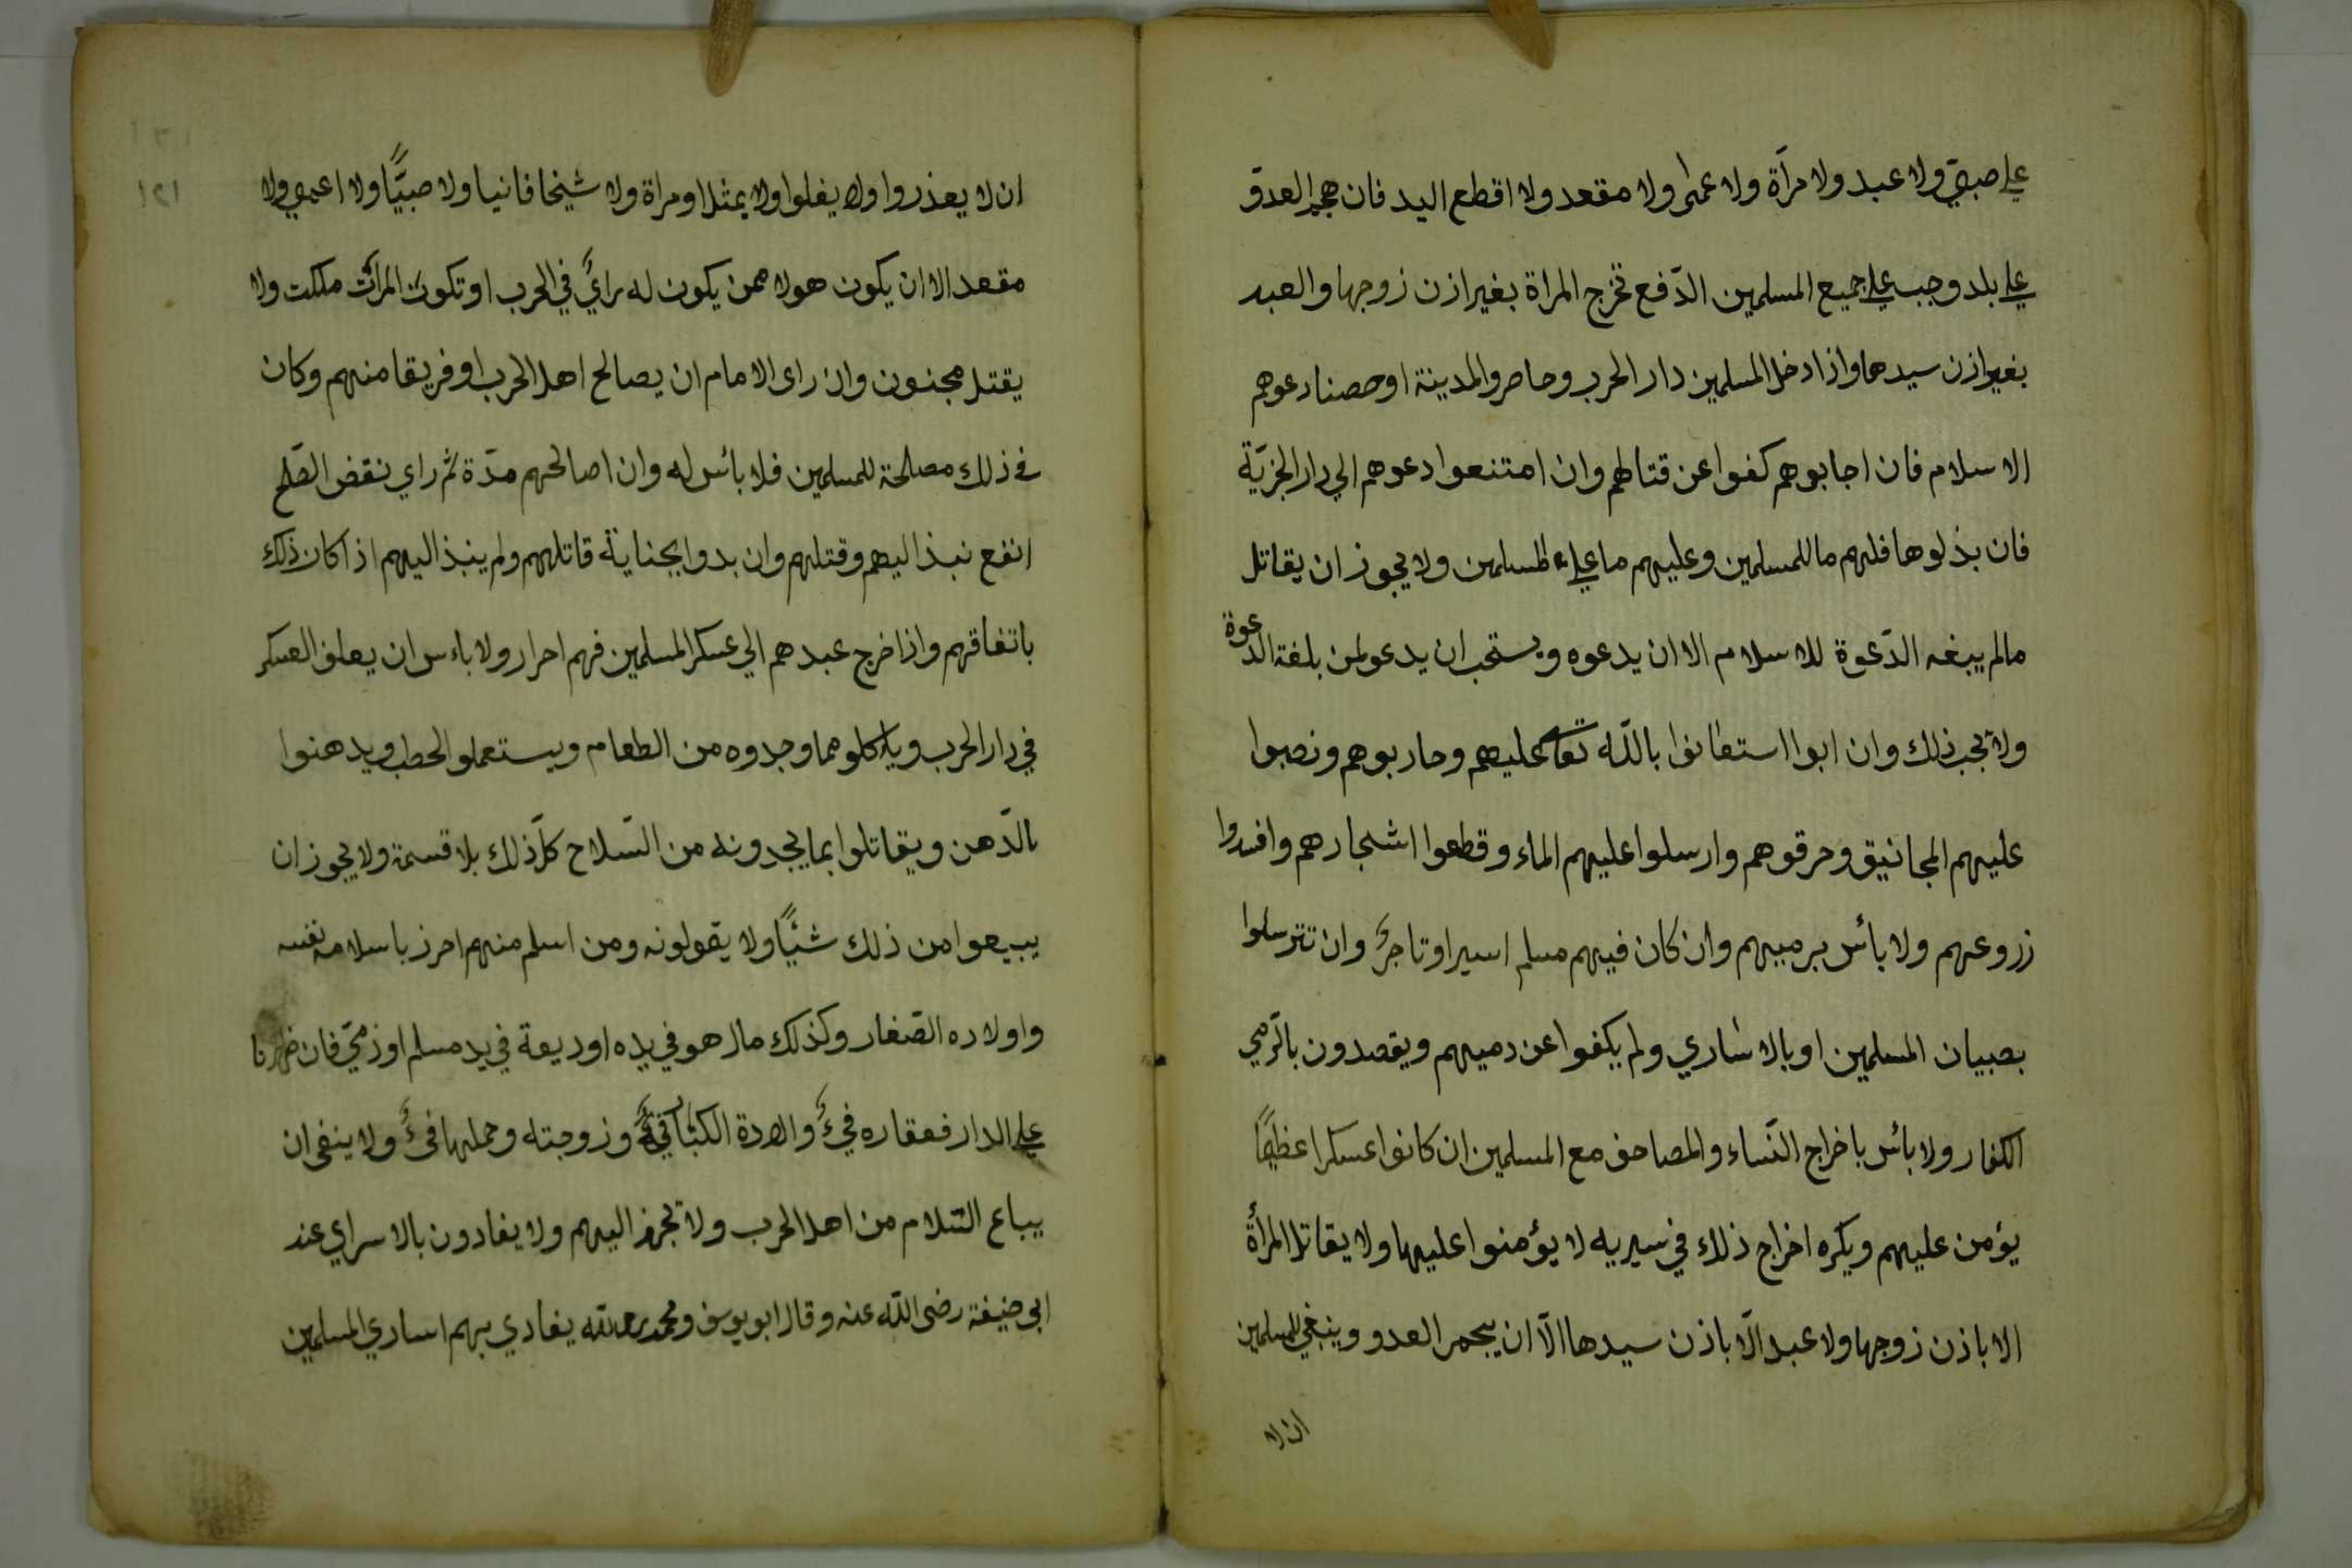 علي صبيّ ولا عبد ولا مرآة ولا عمى ولا مقعد ولا اقطع اليد فان هجم العدوّ
علي بلد وجب علي جميع المسلمين الدّفع تخرج المراة بغير اذن زوجها والعبد
بغير اذن سيدهما واذا دخل المسلمين دار الحرب وحاصر والمدينة او حصنا دعوهم
الا سلام فان اجابوهم كفوا عن قتالهم وان امتنعوا دعوهم الي دار الجزيّة
فان بذلوها فلهم ما للمسلمين وعليهم ما علي المسلمين ولا يجوز ان يقاتل
مالم يبغه الدّعوة للا سلام الا ان يدعوه ويستحب ان يدعو لمن بلغة الدّعوة
ولا تجب ذلك وان ابوا استعانوا باللّه تعا عليهم وحاربوهم ونصبوا
عليهم المجانيق وحرقوهم وارسلوا عليهم الماء وقطعوا اشجارهم وافسدوا
زروعهم ولا بائس برميهم وان كان فيهم مسلم اسير او تاجر وان تترسلوا
بصبيان المسلمين او بالا ساري ولم يكفوا عن رميهم ويقصدون بالرّمي
الكفار ولا بائس باخراج النّساء والمصاحف مع المسلمين ان كانوا عسكرا عظيمًا
يؤمن عليهم ويكره اخراج ذلك في سيريه لا يؤمنوا عليها ولا يقاتل المرأة
الا باذن زوجها ولا عبد الّا باذن سيدها الّا ان يهجم العدو وينبغي للمسلمين
ان لا
١٢١
ان لا يعذروا ولا يغلوا ولا يمثلوا ومراة ولا شيخا فانيا ولا صبيًّا ولا اعمي ولا
مقعد الا ان يكون هولا ممن يكون له رايٌ في الحرب او تكون المرأت ملكت ولا
يقتل مجنون وان راى الامام ان يصالح اهل الحرب او فريقا منهم وكان
في ذلك مصلحة للمسلمين فلا بائس له وان اصالحهم مدّة ثم راي نقض الصّلح
انفع نبذ اليهم وقتلهم وان بدوا بجناية قاتلهم ولم ينبذ اليهم اذا كان ذلك
باتفاقهم واذا خرج عبدهم الي عسكر المسلمين فهم احرار ولا باءس ان يعلف العسكر
في دار الحرب وياكلو مما وجدوه من الطعام ويستعملو الحطب ويدهنوا
بالدّهن ويقاتلوا بما يجدونه من السّلاح كلّ ذلك بلا قسمة ولا يجوز ان
يبيعوا من ذلك شيًّا ولا يقولونه ومن اسلم منهم احرز باسلامه نفسه
واولاده الصّغار وكذلك مال هو في يده او ديعة في يد مسلم او ذمّي فان ظهرنا
علي الدار فعقاره فيءٌ والادة الكبّار فيءٌ وزوجته وحملها فيءٌ ولا ينغي ان
يباع السّلام من اهل الحرب ولا تجهز اليهم ولا يفادون بالا سراي عند
ابي حنيفة رضى اللّه عنه وقال ابو يوسف ومحمد رحمه اللّه يفادي بهم اساري المسلمين